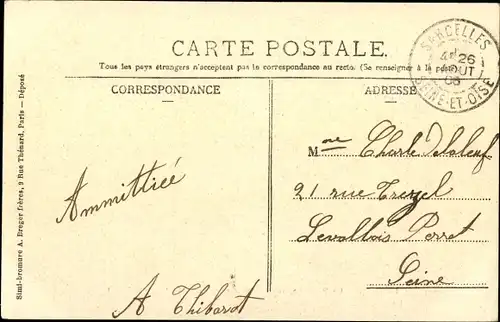 CARTE POSTALE.
Tous les pays étrangers n'acceptent pas la correspondance au recto. (Se renseigner à la poste)
SARCELLES
SEINE-ET-OISE
26
AOUT
CORRESPONDANCE
ADRESSE
Ammittiée
A Thibarot
Mme Charle
21 rue Trezel
Levallois Perret
Seine
Simi-bromure A. Breger frères, 9 Rue Thénard, Paris — Déposé